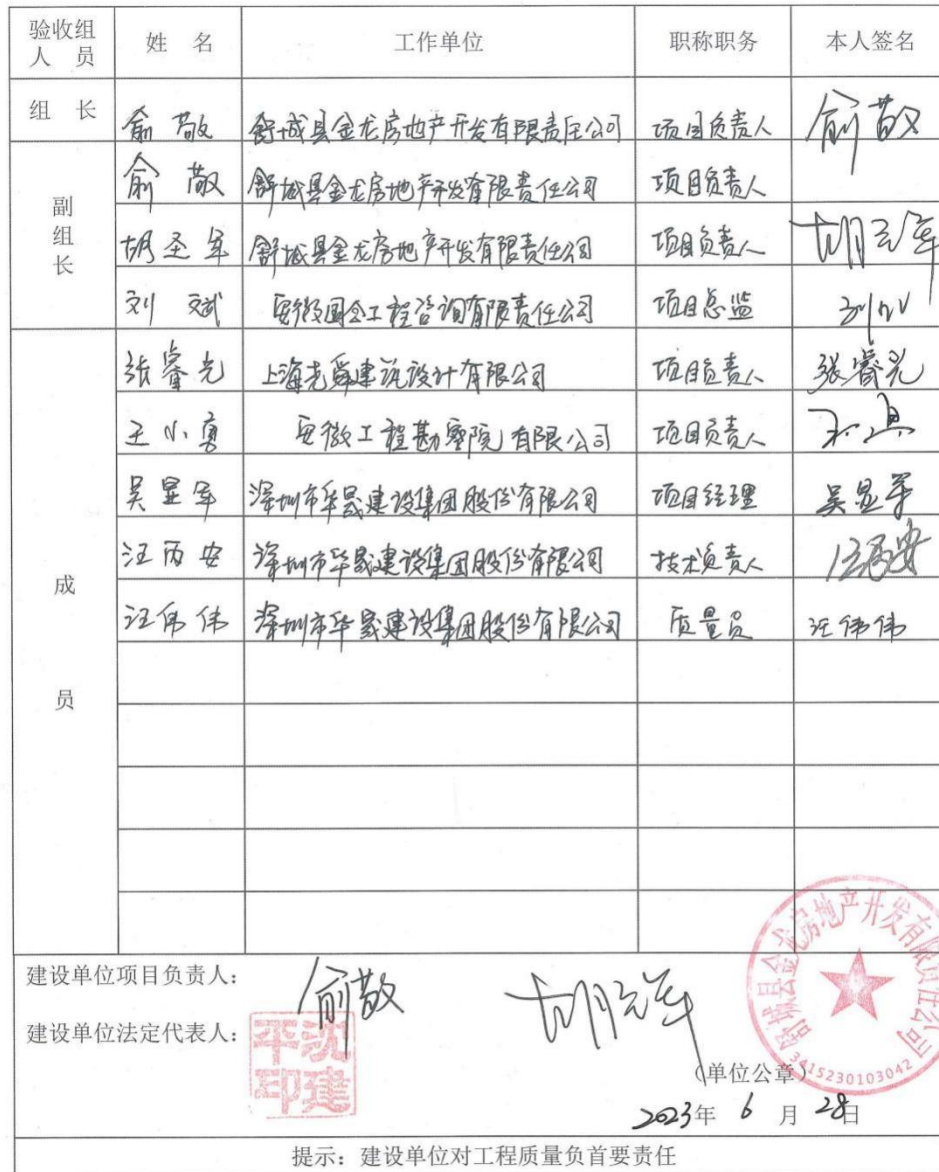 验收组人员 姓名 工作单位 职称职务 本人签名
组长 俞敬 舒城县金龙房地产开发有限责任公司 项目负责人 俞敬
副组长 俞敬 舒城县金龙房地产开发有限责任公司 项目负责人
胡圣军 舒城县金龙房地产开发有限责任公司 项目负责人
刘斌 安徽国合工程咨询有限责任公司 项目总监
成员 张睿光 上海尧舜建筑设计有限公司 项目负责人 张睿光
王小勇 安徽工程勘察院有限公司 项目负责人
吴显军 深圳市华晟建设集团股份有限公司 项目经理 吴显军
汪丙安 深圳市华晟建设集团股份有限公司 技术负责人
汪伟伟 深圳市华晟建设集团股份有限公司 质量员 汪伟伟
建设单位项目负责人： 俞敬
建设单位法定代表人： 沈建平印
舒城县金龙房地产开发有限责任公司
3415230103042
（单位公章）
2023年 6 月 28日
提示：建设单位对工程质量负首要责任